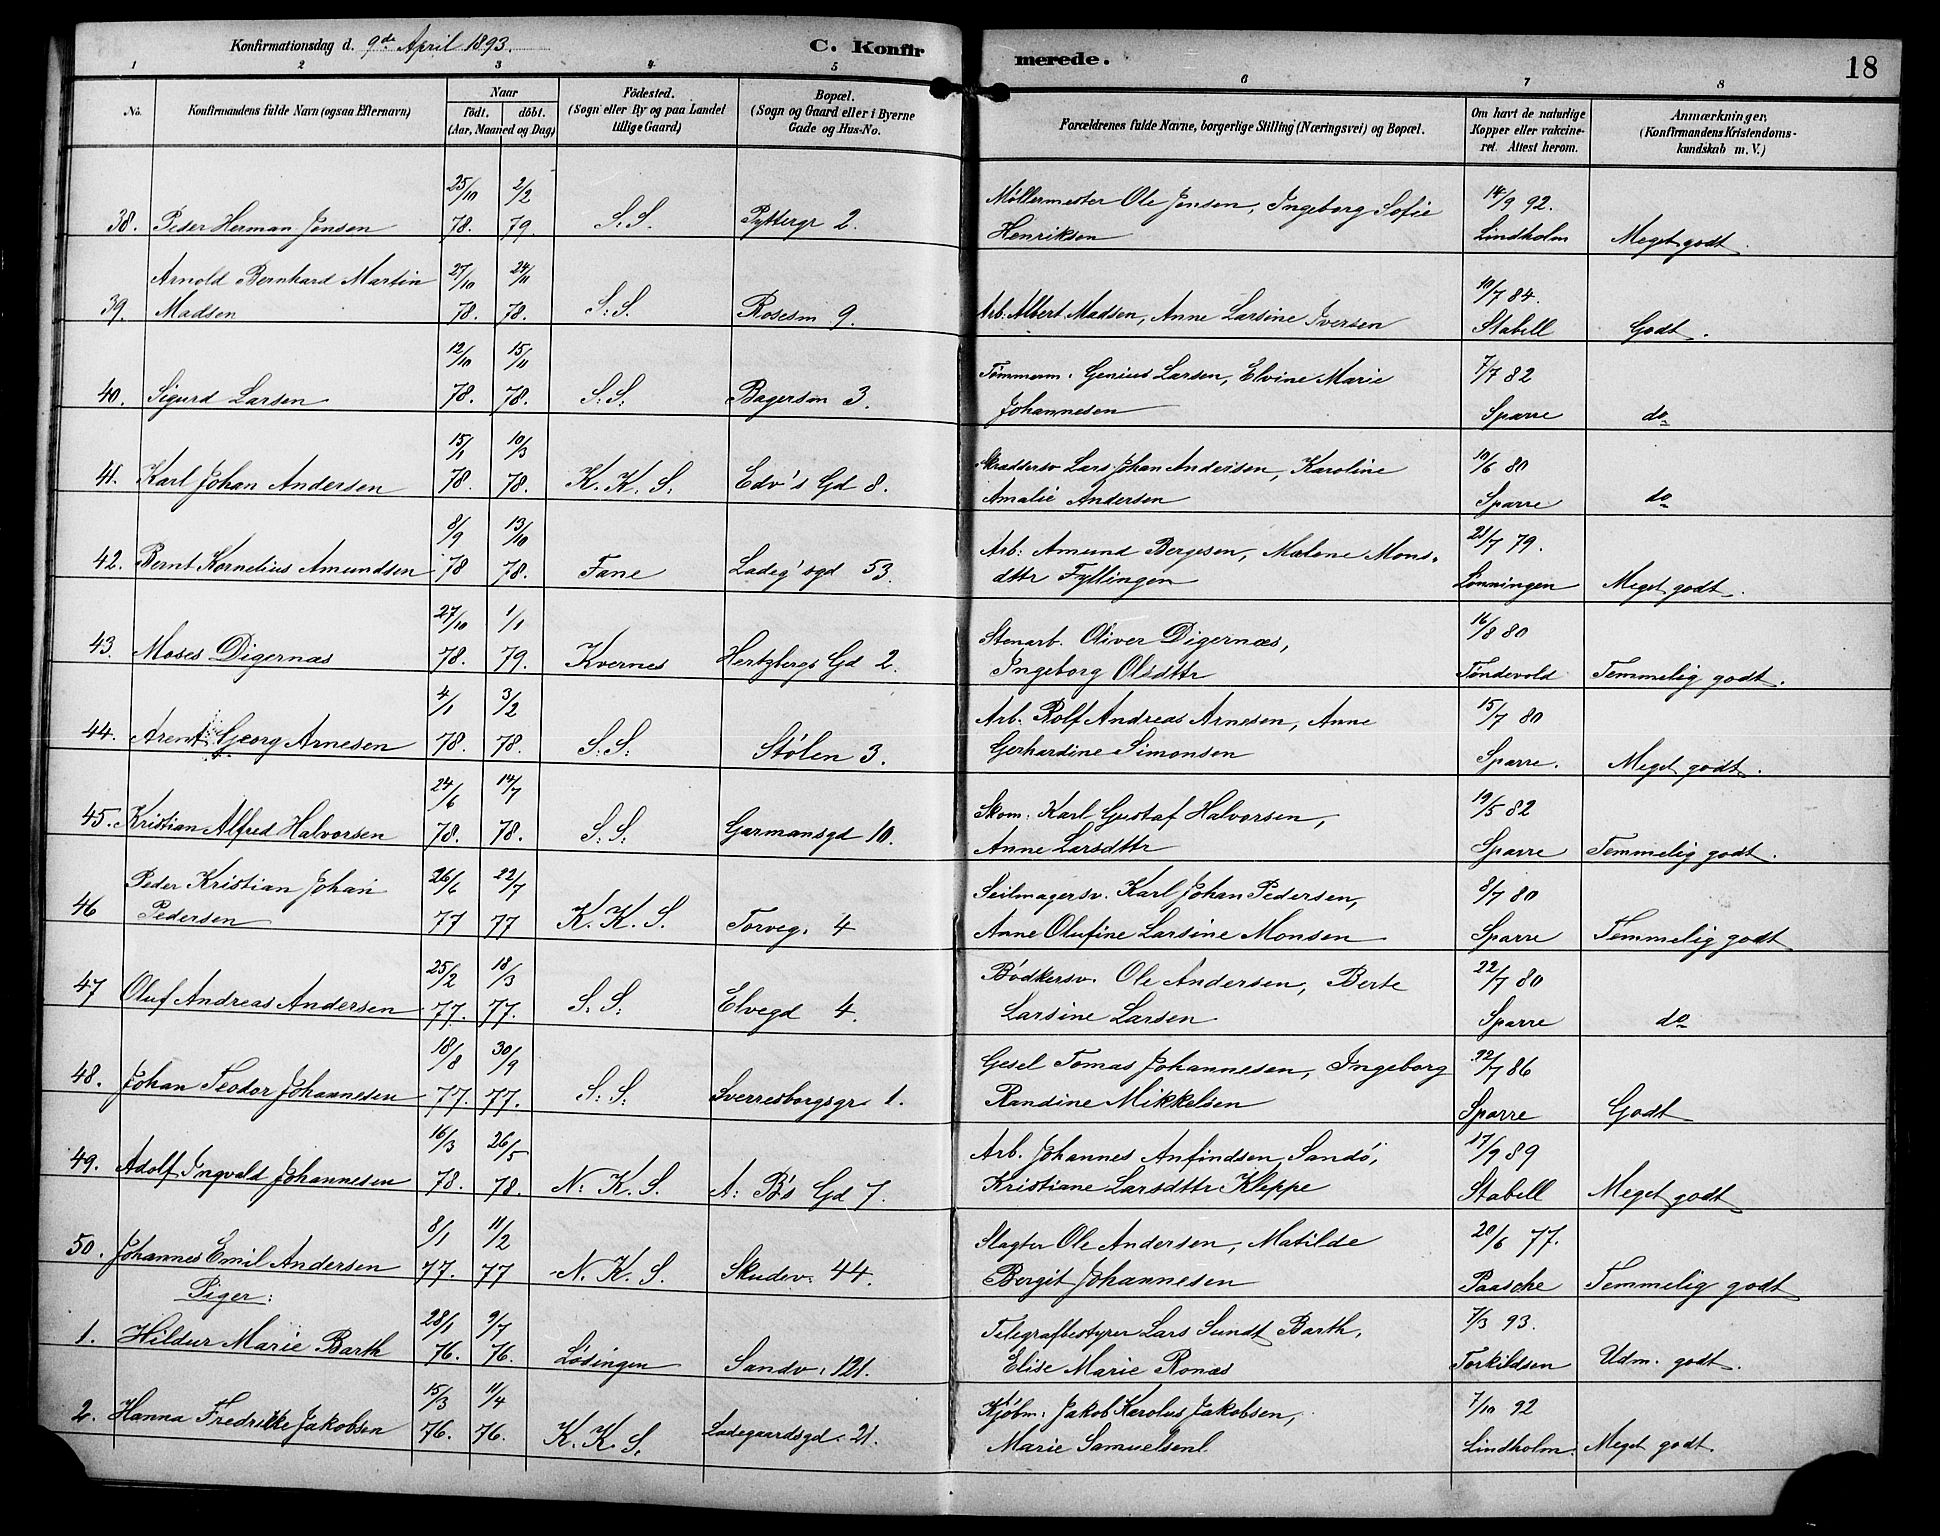 Konfirmationsdag d. 9de April 1893.
C. Konfir
merede.
18
1 2 3 4 5 6 7 8
No. Konfirmandens fulde Navn (ogsaa Efternavn) Naar födt. döbt. (Aar, Maaned og Dag) Födested. (Sogn eller By og paa Landet tillige Gaard) Bopæl. (Sogn og Gaard eller i Byerne Gade og Hus-No. Forældrenes fulde Navne, borgerlige Stilling (Næringsvei) og Bopæl. Om havt de naturlige Kopper eller vakcineret. Attest herom. Anmærkninger. (Konfirmandens Kristendomskundskab m. V.)
25/10 2/2 Møllermester Ole Jensen, Ingeborg Sofie 14/9 92.
38. Peder Herman Jensen 78. 79. S.S. Pyttergr 2. Henriksen Lindholm Meget godt.
Arnold Bernhard Martin 27/10 24/11 10/7 84.
39. Madsen 78. 78. S.S. Rosesm 9. Arb. Albert Madsen, Anne Larsine Iversen Stabell Godt.
12/10 15/11 Tømmerm. Genius Larsen, Elvine Marie 7/7 82
40. Sigurd Larsen 78. 78. S.S. Bagersm 3. Johannesen Sparre do
15/1 10/3 Skræddersv Lars Johan Andersen, Karoline 10/6 80
41. Karl Johan Andersen 78. 78. K.K.S. Edv's Gd 8. Amalie Andersen Sparre do
8/9 13/10 Arb: Amund Bergesen, Malene Mons- 23/7 79.
42. Bernt Kornelius Amundsen 78 78. Fane Ladeg'sgd 53. dttr Fyllingen Lønningen Meget godt.
27/10 1/1 Stenarb. Oliver Digernæs, 16/8 80
43. Moses Digernæs 78. 79. Kvernes Hertzbergs Gd 2. Ingeborg Olsdttr Tøndevold Temmelig godt.
4/1 3/2 Arb. Rolf Andreas Arnesen, Anne 15/7 80
44. Arent Georg Arnesen 78. 78. S.S. Stølen 3. Gerhardine Simonsen Sparre. Meget godt.
24/6 14/7 Skom. Karl Gustaf Halvorsen, 19/5 82
45. Kristian Alfred Halvorsen 78. 78. S.S. Garmansgd 10. Anne Larsdttr Sparre Temmelig godt.
Peder Kristian Johan 26/6 22/7 Seilmagersv. Karl Johan Pedersen, 8/7 80
46 Pedersen 77 77 K.K.S. Torveg. 4 Anne Olufine Larsine Monsen Sparre Temmelig godt
25/2 18/3 Bødkersv. Ole Andersen, Berte 22/7 80
47 Oluf Andreas Andersen 77. 77. S.S. Elvegd 4. Larsine Larsen Sparre do
18/8 30/9 Gesel Tomas Johannesen, Ingeborg 22/7 86
48. Johan Teodor Johannesen 77. 77. S.S. Sverresborgsgr. 1. Randine Mikkelsen Sparre Godt
16/3 26/5 Arb. Johannes Anfindsen Sandö, 17/9 89
49. Adolf Ingvald Johannesen 78. 78. N.K.S. A: B's Gd 7. Kristiane Larsdttr Kleppe Stabell Meget godt
8/1 11/2 Slagter Ole Andersen, Matilde 20/6 77.
50. Johannes Emil Andersen 77. 77 N.K.S. Skudev. 44. Bergit Johannesen Paasche Temmelig godt
Piger:
28/1 9/7 Telegrafbestyrer Lars Sundt Barth, 7/3 93.
1. Hildur Marie Barth 76. 76. Lødingen Sandv. 121. Elise Marie Ronæs Torkildsen Udm. godt.
15/3 11/4 Kjøbm: Jakob Karolus Jakobsen, 7/10 92
2. Hanna Fredrikke Jakobsen 76. 76. K.K.S. Ladegaardsgd. 21. Marie Samuelsen Lindholm. Meget godt.